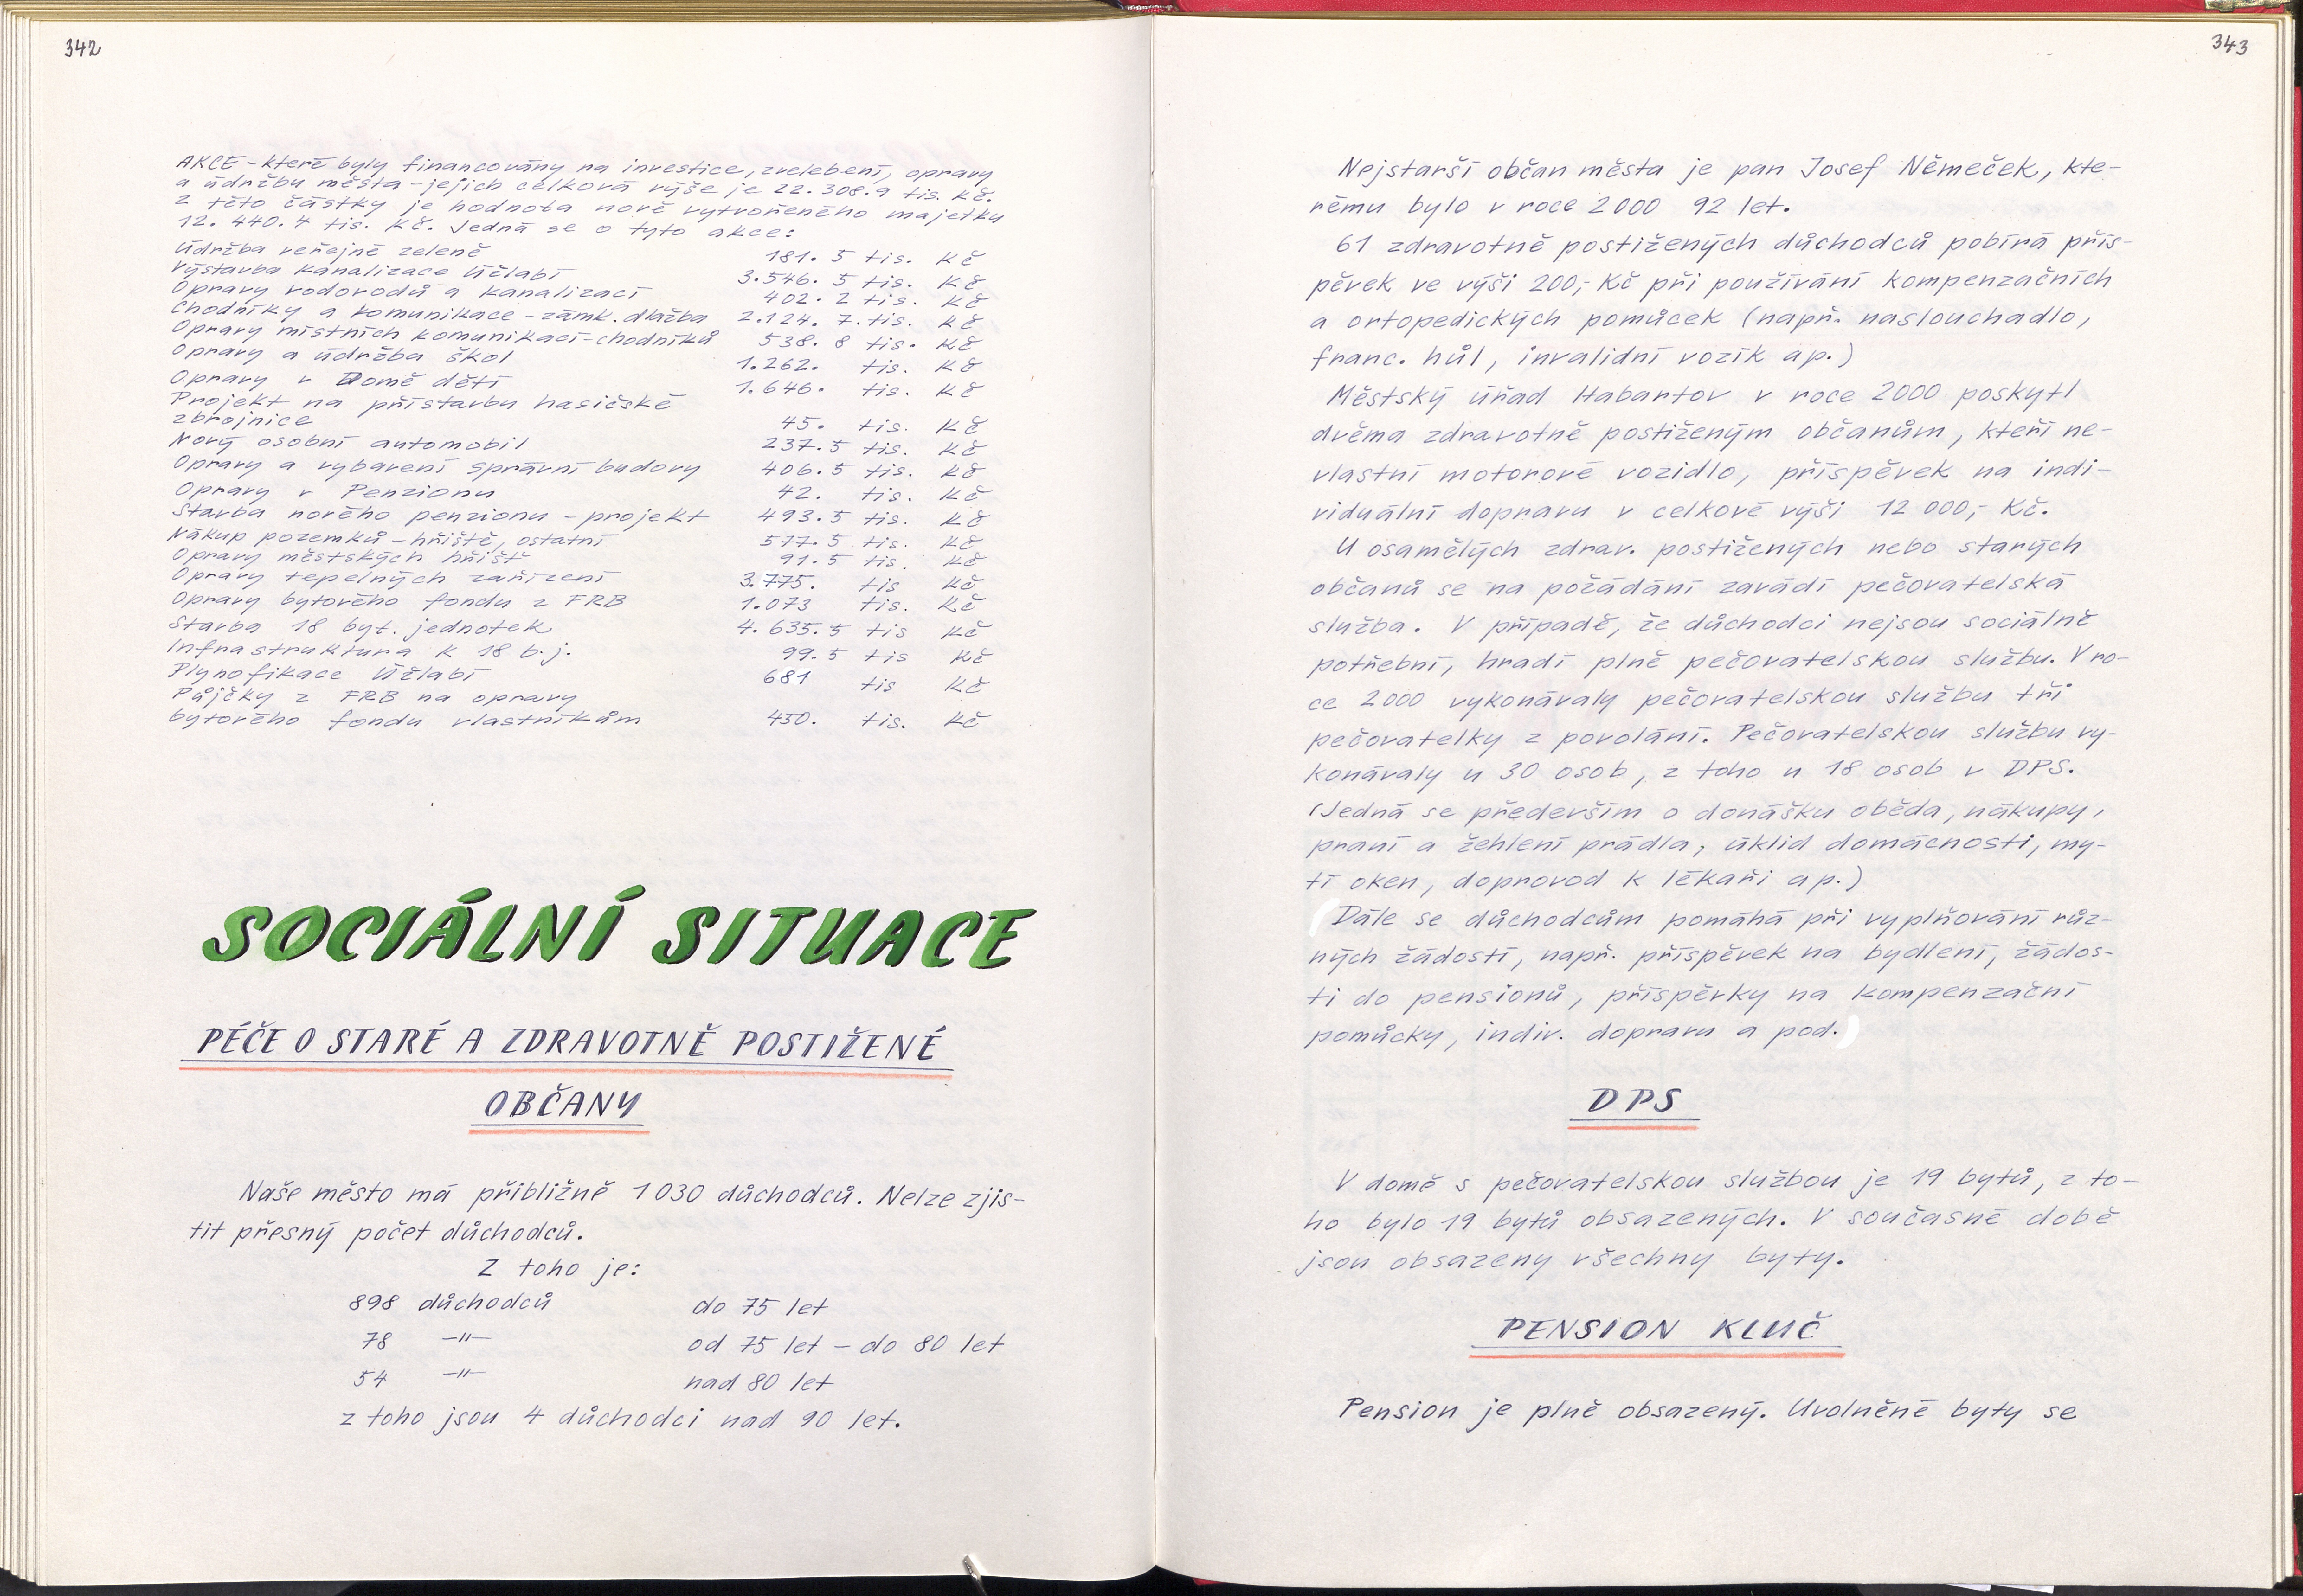 342
AKCE - které byly financovány na investice, zvelebení, opravy
a údržbu města - jejich celková výše je 22.308.9 tis. Kč.
Z této částky je hodnota nově vytvořeného majetku
12.440.4 tis. Kč. Jedná se o tyto akce:
Údržba veřejné zeleně 181.5 tis. Kč
Výstavba kanalizace Účlabí 3.546.5 tis. Kč
Opravy vodovodů a kanalizací 402.2 tis. Kč
Chodníky a komunikace - zámk. dlažba 2.124.7. tis. Kč
Opravy místních komunikací - chodníků 538.8 tis. Kč
Opravy a údržba škol 1.262. tis. Kč
Opravy v Domě dětí 1.646. tis. Kč
Projekt na přístavbu hasičské
zbrojnice 45. tis. Kč
Nový osobní automobil 237.5 tis. Kč
Opravy a vybavení správní budovy 406.5 tis. Kč
Opravy v Penzionu 42. tis. Kč
Stavba nového penzionu - projekt 493.5 tis. Kč
Nákup pozemků - hřiště, ostatní 577.5 tis. Kč
Opravy městských hřišť 91.5 tis. Kč
Opravy tepelných zařízení 3.775. tis Kč
Opravy bytového fondu z FRB 1.073 tis. Kč
Stavba 18 byt. jednotek 4.635.5 tis Kč
Infrastruktura k 18 b.j. 99.5 tis Kč
Plynofikace Úžlabí 681 tis Kč
Půjčky z FRB na opravy
bytového fondu vlastníkům 450. tis. Kč
SOCIÁLNÍ SITUACE
PÉČE O STARÉ A ZDRAVOTNĚ POSTIŽENÉ
OBČANY
Naše město má přibližně 1030 důchodců. Nelze zjis-
tit přesný počet důchodců.
Z toho je:
898 důchodců do 75 let
78 -"- od 75 let - do 80 let
54 -"- nad 80 let
z toho jsou 4 důchodci nad 90 let.
343
Nejstarší občan města je pan Josef Němeček, kte-
rému bylo v roce 2000 92 let.
61 zdravotně postižených důchodců pobírá přís-
pěvek ve výši 200,- Kč při používání kompenzačních
a ortopedických pomůcek (např. naslouchadlo,
franc. hůl, invalidní vozík ap.)
Městský úřad Habartov v roce 2000 poskytl
dvěma zdravotně postiženým občanům, kteří ne-
vlastní motorové vozidlo, příspěvek na indi-
viduální dopravu v celkové výši 12 000,- Kč.
U osamělých zdrav. postižených nebo starých
občanů se na požádání zavádí pečovatelská
služba. V případě, že důchodci nejsou sociálně
potřební, hradí plně pečovatelskou službu. V ro-
ce 2000 vykonávaly pečovatelskou službu tři
pečovatelky z povolání. Pečovatelskou službu vy-
konávaly u 30 osob, z toho u 18 osob v DPS.
(Jedná se především o donášku oběda, nákupy,
praní a žehlení prádla, úklid domácnosti, my-
tí oken, doprovod k lékaři ap.)
Dále se důchodcům pomáhá při vyplňování růz-
ných žádostí, např. příspěvek na bydlení, žádos-
ti do pensionů, příspěvky na kompenzační
pomůcky, indiv. dopravu a pod.
DPS
V domě s pečovatelskou službou je 19 bytů, z to-
ho bylo 19 bytů obsazených. V současné době
jsou obsazeny všechny byty.
PENSION KLUČ
Pension je plně obsazený. Uvolněné byty se